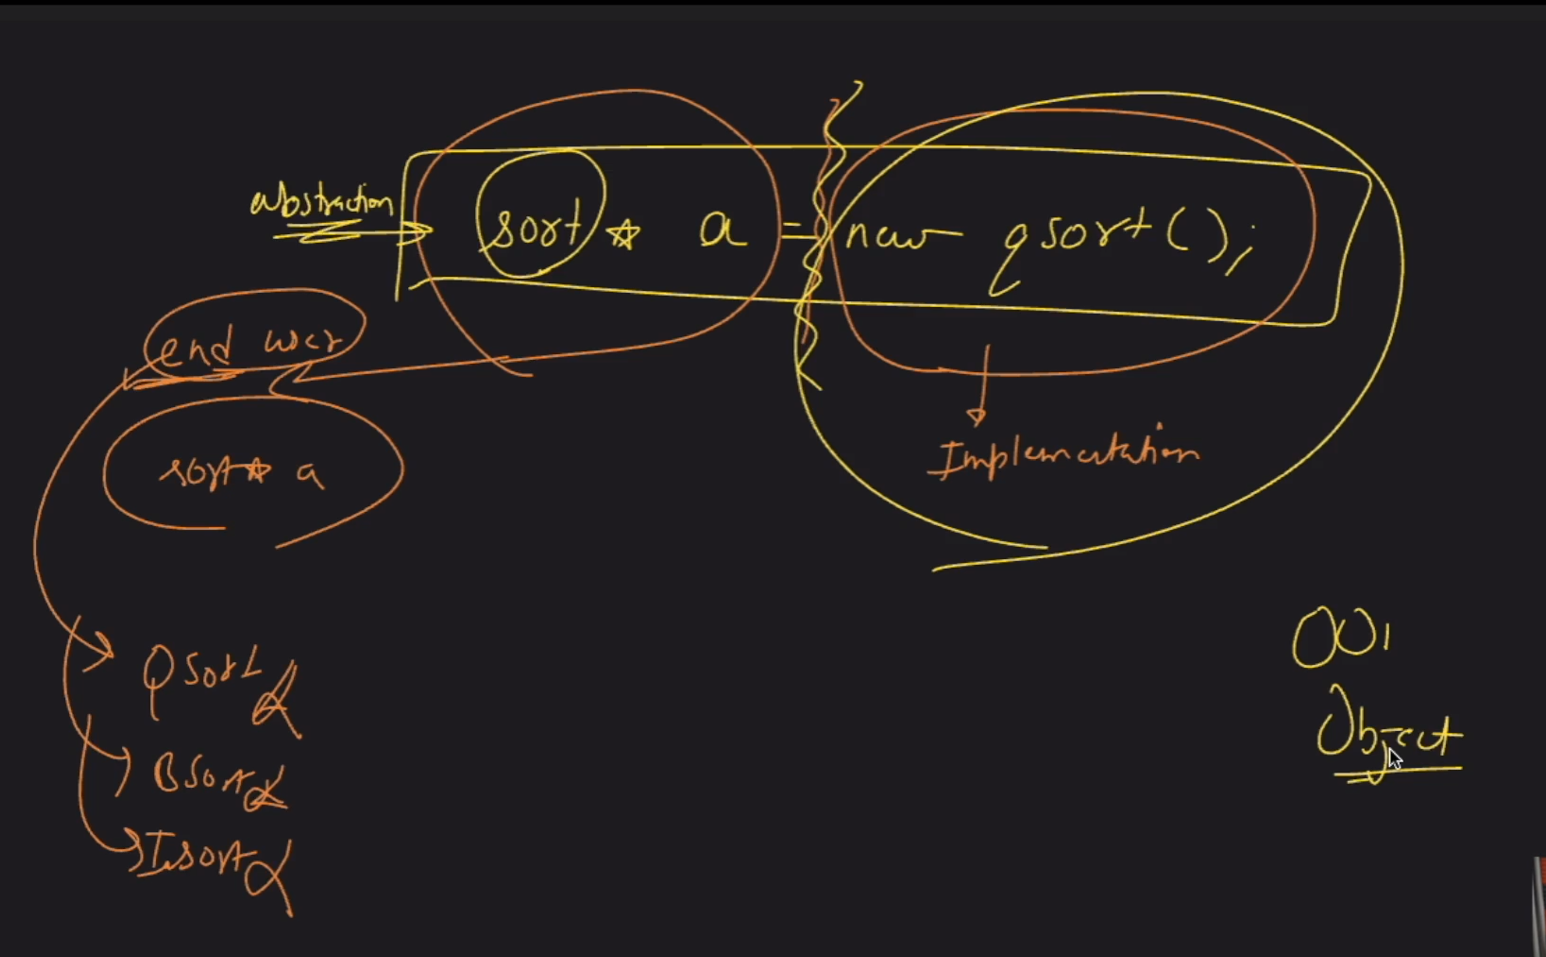 abstraction
sort * a = new qsort();
end user
sort* a
Implementation
Qsort
Bsort
Isort
OO
Object